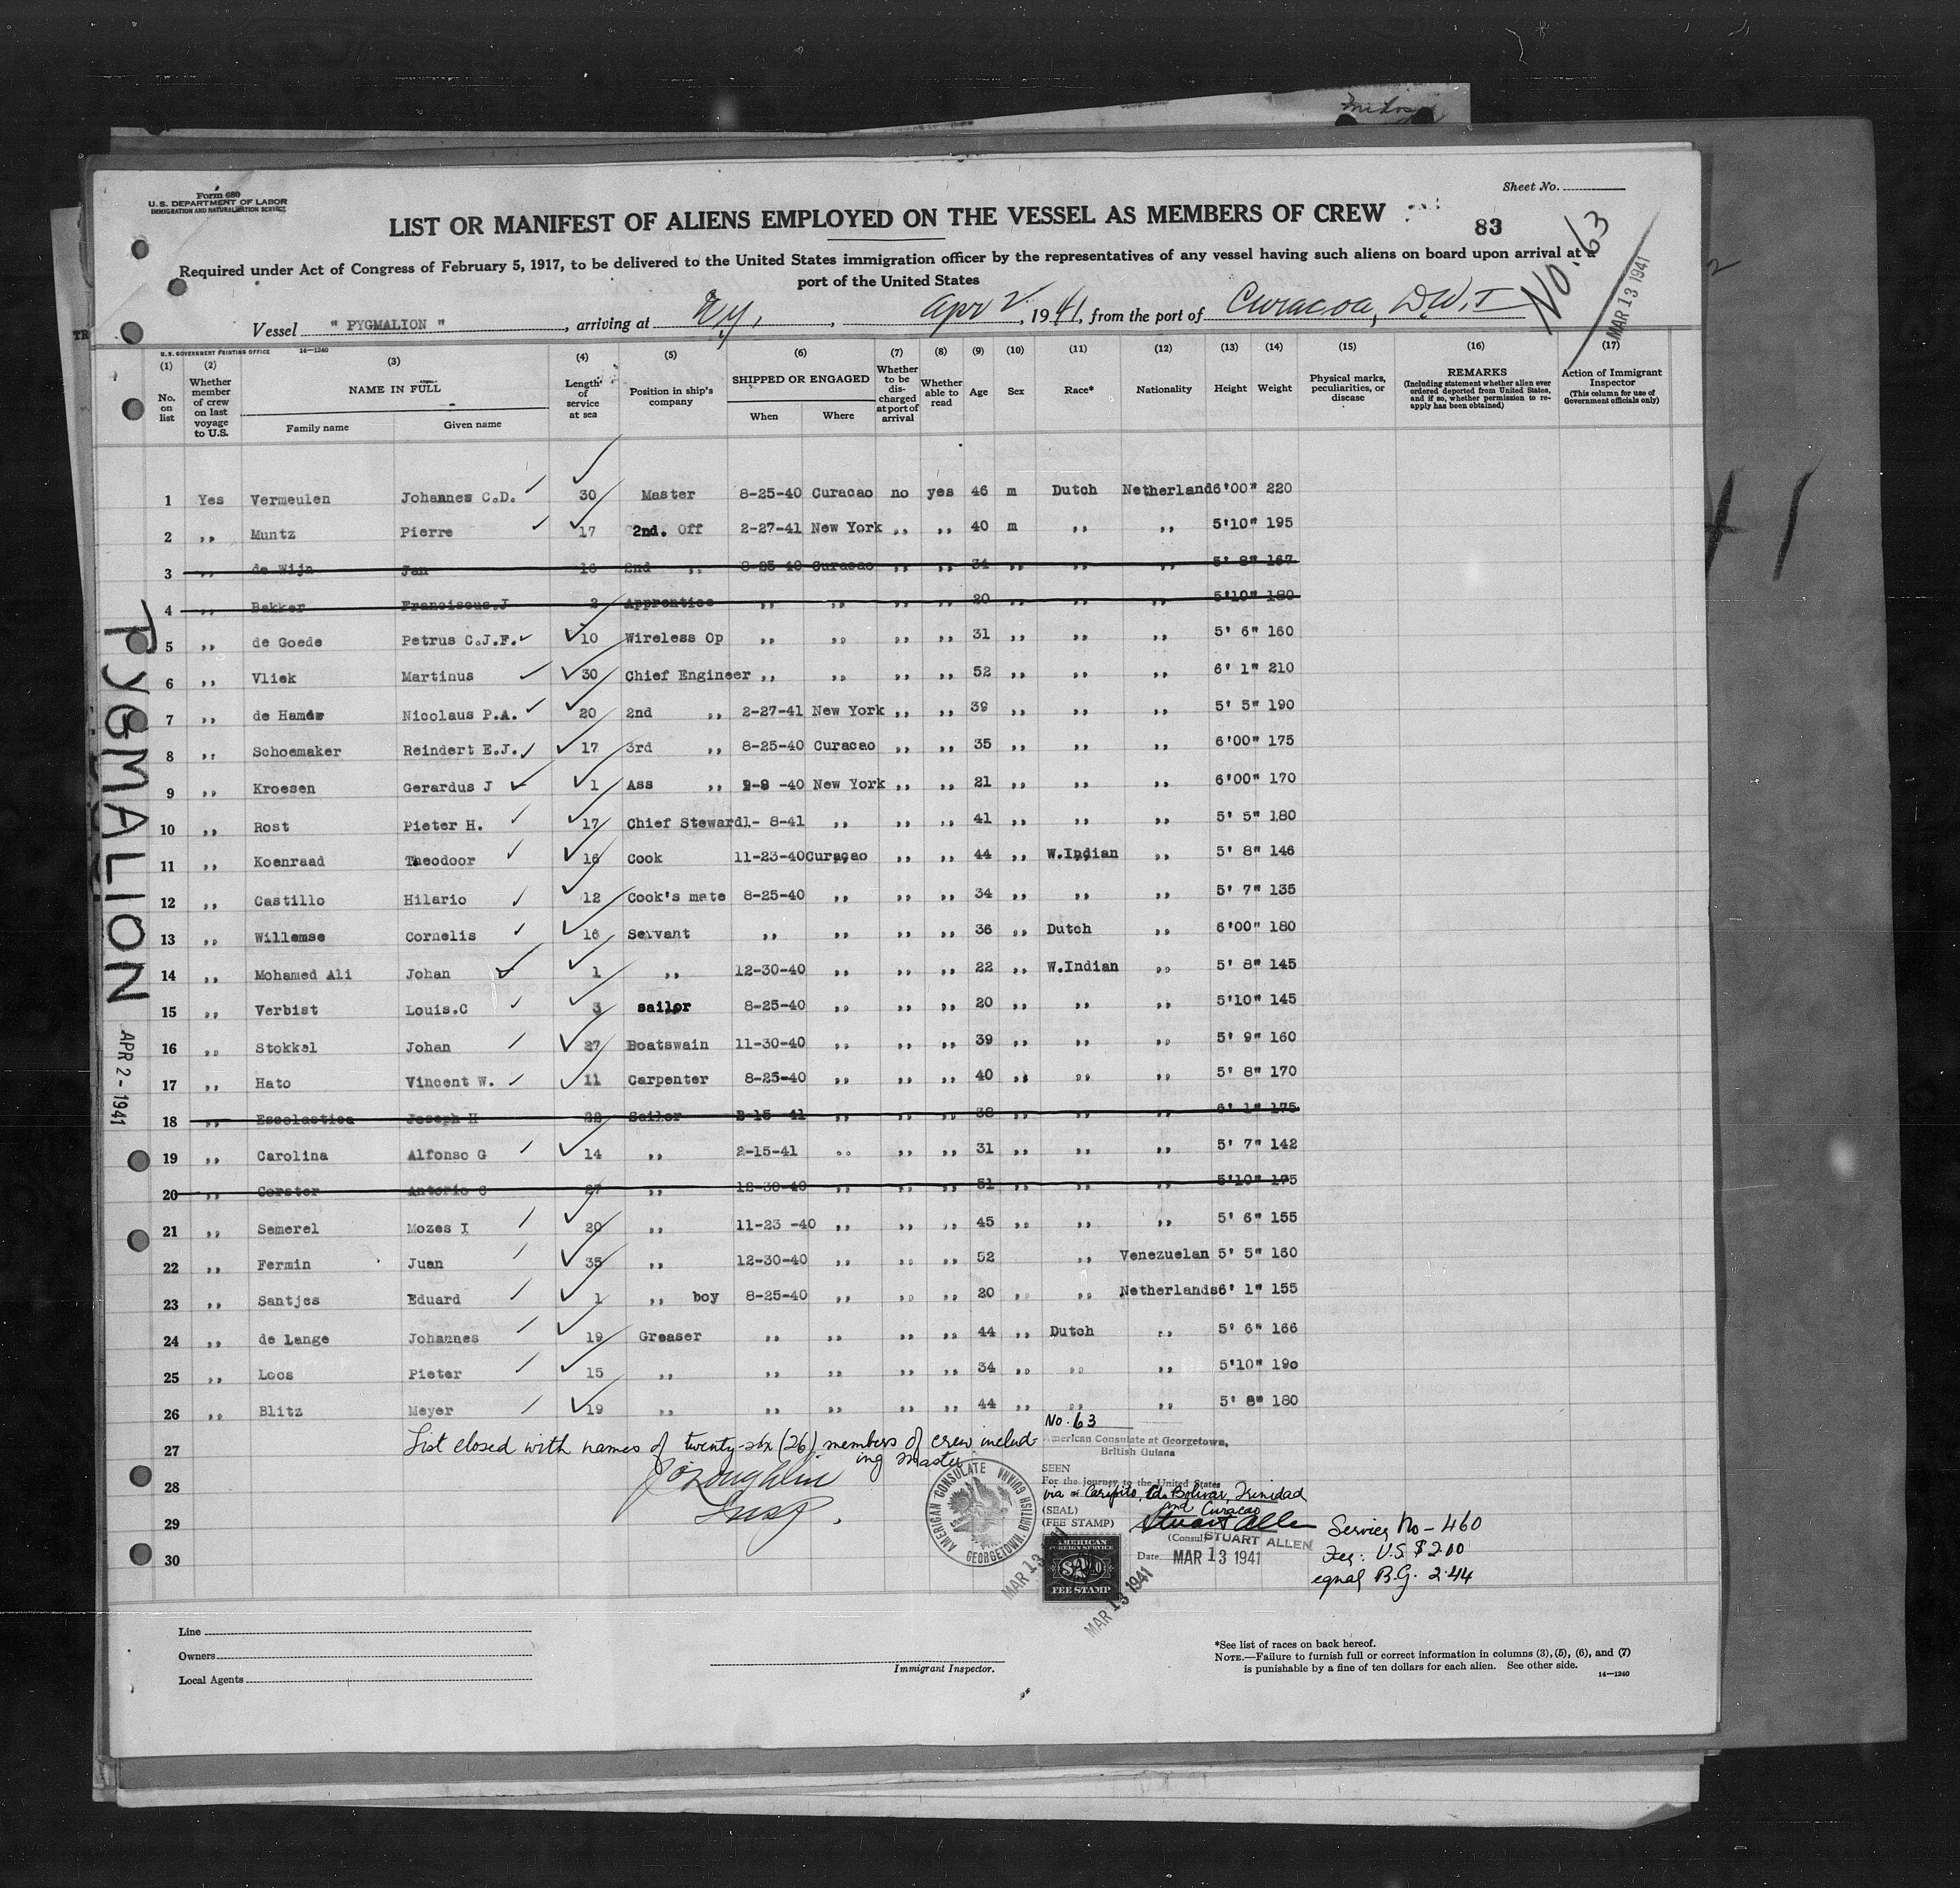 Form 680
U. S. DEPARTMENT OF LABOR
IMMIGRATION AND NATURALIZATION SERVICE
Sheet No.
LIST OR MANIFEST OF ALIENS EMPLOYED ON THE VESSEL AS MEMBERS OF CREW
83
No. 63
MAR 13 1941
Required under Act of Congress of February 5, 1917, to be delivered to the United States immigration officer by the representatives of any vessel having such aliens on board upon arrival at a
port of the United States
Vessel " PYGMALION " , arriving at N.Y. , Apr 2 , 1941, from the port of Curacoa, D.W.I
U. S. GOVERNMENT PRINTING OFFICE 14—1240
(1) No. on list
(2) Whether member of crew on last voyage to U.S.
(3) NAME IN FULL
Family name Given name
(4) Length of service at sea
(5) Position in ship's company
(6) SHIPPED OR ENGAGED
When Where
(7) Whether to be discharged at port of arrival
(8) Whether able to read
(9) Age
(10) Sex
(11) Race*
(12) Nationality
(13) Height
(14) Weight
(15) Physical marks, peculiarities, or disease
(16) REMARKS
(Including statement whether alien ever ordered deported from United States, and if so, whether permission to reapply has been obtained)
(17) Action of Immigrant Inspector
(This column for use of Government officials only)
1 Yes Vermeulen Johannes C.D. 30 Master 8-25-40 Curacao no yes 46 m Dutch Netherland 6'00" 220
2 ,, Muntz Pierre 17 2nd. Off 2-27-41 New York ,, ,, 40 m ,, ,, 5'10" 195
3 ,, de Wijn Jan 16 2nd ,, 8-25-40 Curacao ,, ,, 34 ,, ,, ,, 5' 8" 167
4 ,, Bakker Franciscus.J 2 Apprentice ,, ,, ,, ,, 20 ,, ,, ,, 5'10" 180
5 ,, de Goede Petrus C.J.F. 10 Wireless Op ,, ,, ,, ,, 31 ,, ,, ,, 5' 6" 160
6 ,, Vliek Martinus 30 Chief Engineer ,, ,, ,, ,, 52 ,, ,, ,, 6' 1" 210
7 ,, de Hamer Nicolaus P.A. 20 2nd ,, 2-27-41 New York ,, ,, 39 ,, ,, ,, 5' 5" 190
8 ,, Schoemaker Reindert E.J. 17 3rd ,, 8-25-40 Curacao ,, ,, 35 ,, ,, ,, 6'00" 175
9 ,, Kroesen Gerardus J 1 Ass ,, 9-8 -40 New York ,, ,, 21 ,, ,, ,, 6'00" 170
10 ,, Rost Pieter H. 17 Chief Steward 1- 8-41 ,, ,, ,, 41 ,, ,, ,, 5' 5" 180
11 ,, Koenraad Theodoor 16 Cook 11-23-40 Curaçao ,, ,, 44 ,, W.Indian ,, 5' 8" 146
12 ,, Castillo Hilario 12 Cook's mate 8-25-40 ,, ,, ,, 34 ,, ,, ,, 5' 7" 135
13 ,, Willemse Cornelis 16 Servant ,, ,, ,, ,, 36 ,, Dutch ,, 6'00" 180
14 ,, Mohamed Ali Johan 1 ,, 12-30-40 ,, ,, ,, 22 ,, W.Indian ,, 5' 8" 145
15 ,, Verbist Louis.C 3 sailor 8-25-40 ,, ,, ,, 20 ,, ,, ,, 5'10" 145
16 ,, Stokkel Johan 27 Boatswain 11-30-40 ,, ,, ,, 39 ,, ,, ,, 5' 9" 160
17 ,, Hato Vincent W. 11 Carpenter 8-25-40 ,, ,, ,, 40 ,, ,, ,, 5' 8" 170
18 ,, Escolastica Joseph H 22 Sailor 2-15-41 ,, ,, ,, 38 ,, ,, ,, 6' 1" 175
19 ,, Carolina Alfonso G 14 ,, 2-15-41 ,, ,, ,, 31 ,, ,, ,, 5' 7" 142
20 ,, Corster Antonio C 27 ,, 12-30-40 ,, ,, ,, 51 ,, ,, ,, 5'10" 175
21 ,, Semerel Mozes I 20 ,, 11-23 -40 ,, ,, ,, 45 ,, ,, ,, 5' 6" 155
22 ,, Fermin Juan 35 ,, 12-30-40 ,, ,, ,, 52 ,, Venezuelan 5' 5" 160
23 ,, Santjes Eduard 1 ,, boy 8-25-40 ,, ,, ,, 20 ,, ,, Netherlands 6' 1" 155
24 ,, de Lange Johannes 19 Greaser ,, ,, ,, ,, 44 ,, Dutch ,, 5' 6" 166
25 ,, Loos Pieter 15 ,, ,, ,, ,, ,, 34 ,, ,, ,, 5'10" 190
26 ,, Blitz Meyer 19 ,, ,, ,, ,, ,, 44 ,, ,, ,, 5' 8" 180
27
28
29
30
List closed with names of twenty-six (26) members of crew includ-
ing master
J O'Loughlin
Insp.
PYGMALION
APR 2 - 1941
No. 63
American Consulate at Georgetown,
British Guiana
SEEN
For the journey to the United States
via Caripito, Cd. Bolivar, Trinidad
and Curacao
(SEAL)
(FEE STAMP)
Stuart Allen
(Consul STUART ALLEN
Date MAR 13 1941
AMERICAN CONSULATE GEORGETOWN, BRITISH GUIANA
AMERICAN FOREIGN SERVICE
FEE STAMP
MAR 13 1941
MAR 13 1941
Service No - 460
Fee: U.S. $2.00
equal B.G. 2.44
Line
Owners
Local Agents
Immigrant Inspector.
*See list of races on back hereof.
NOTE.—Failure to furnish full or correct information in columns (3), (5), (6), and (7)
is punishable by a fine of ten dollars for each alien. See other side.
14—1240